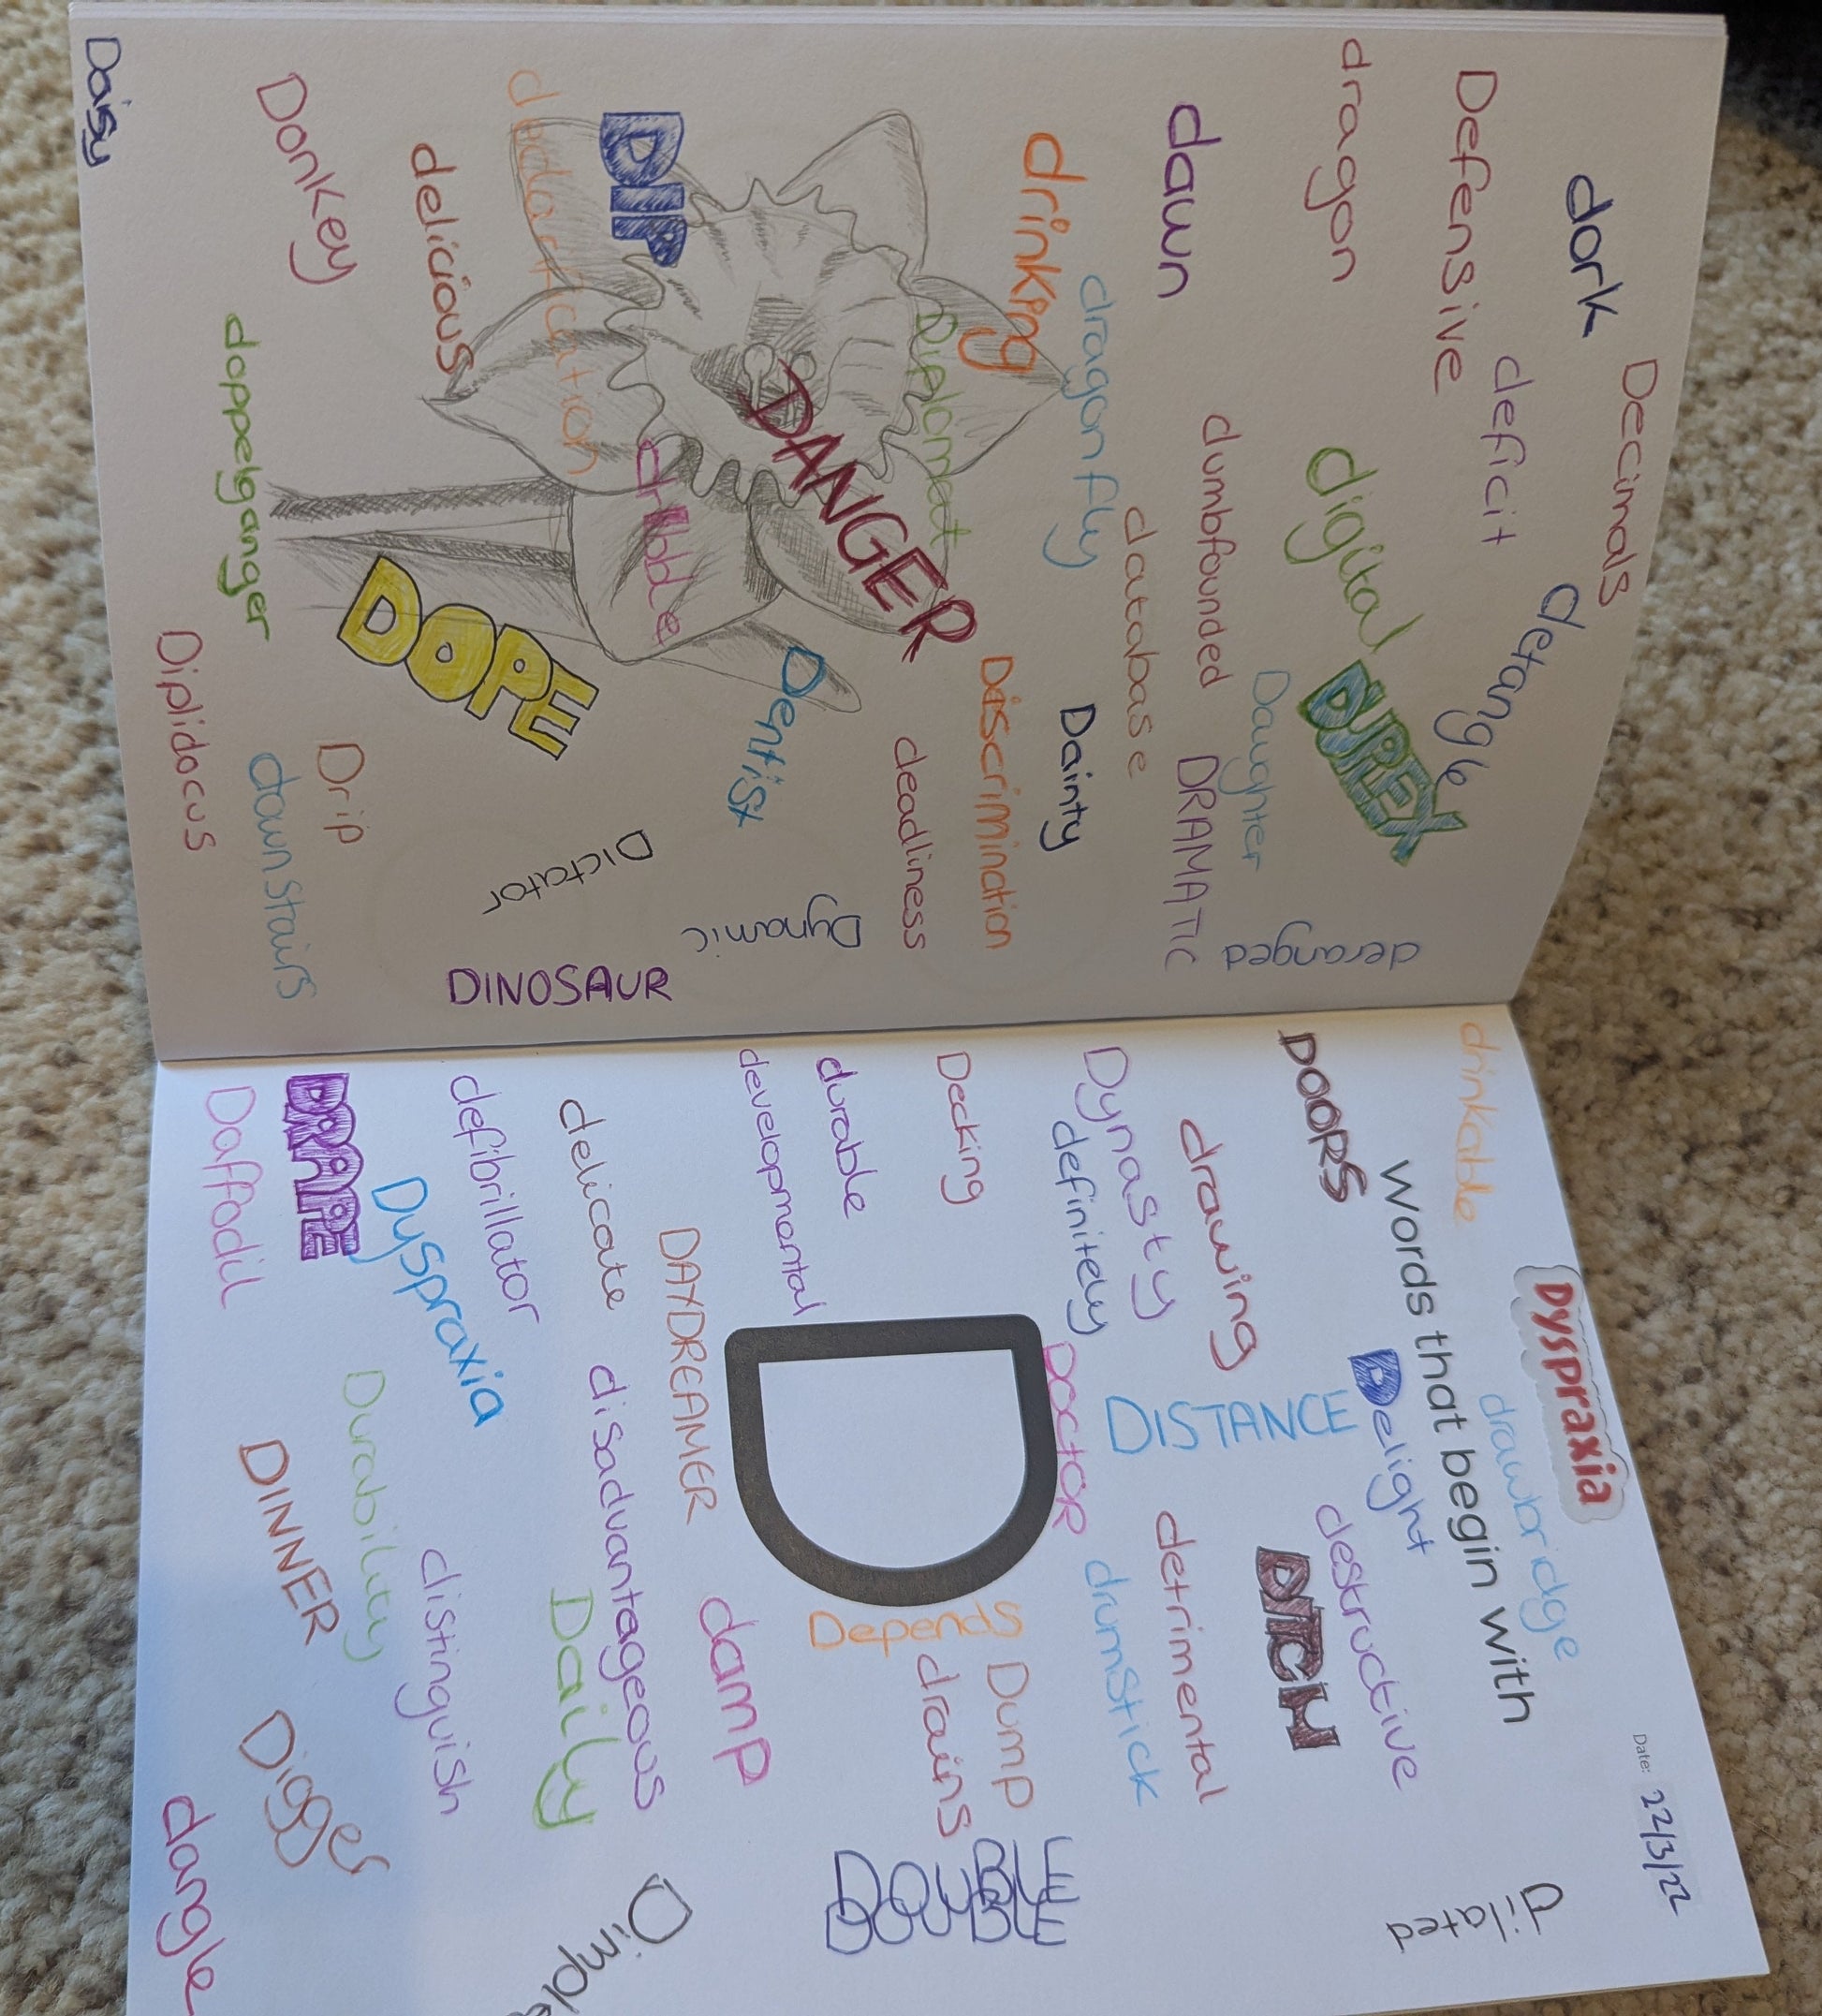 Decimals
dork
detangle
deficit
Defensive
DUPLEX
dragon
digital
deranged
Daughter
dawn
dumbfounded
DRAMATIC
database
dragonfly
Dainty
drinking
Discrimination
Diplomat
deadliness
DANGER
Dynamic
Dentist
DIP
dribble
DINOSAUR
Dictator
DOPE
delicious
Drip
Donkey
doppelganger
downstairs
Diplidocus
Daisy
Date: 22/3/22
Dyspraxia
drawbridge
dilated
drinkable
words that begin with
Delight
destructive
DOORS
DITCH
drawing
DISTANCE
detrimental
Dynasty
definitely
DOCTOR
drumstick
D
Decking
Depends
Dump
drains
DOUBLE
DOUBLE
durable
developmental
DAYDREAMER
damp
delicate
disadvantageous
Daily
Dimple
defibrillator
Dyspraxia
distinguish
DRAPE
Durability
Daffodil
DINNER
Digger
dangle